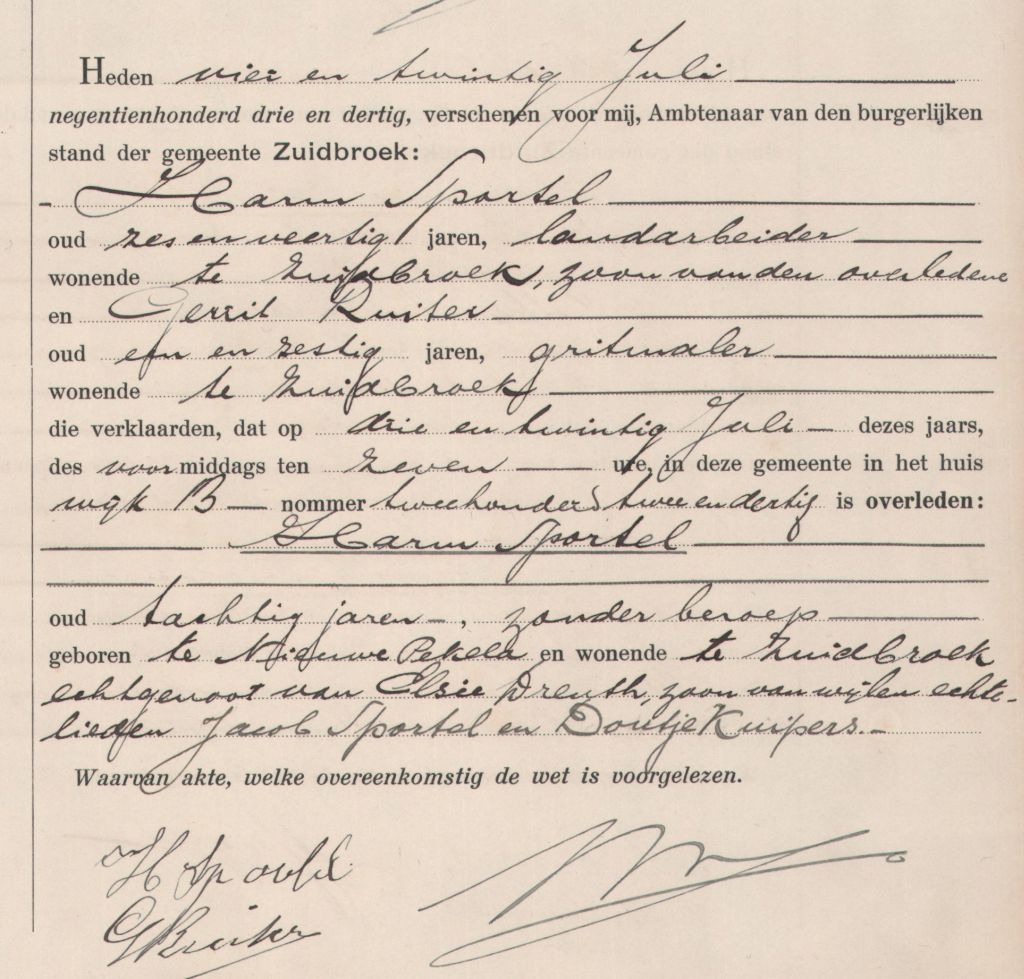 Heden vier en twintig Juli
negentienhonderd drie en dertig, verschenen voor mij, Ambtenaar van den burgerlijken
stand der gemeente Zuidbroek:
Harm Sportel
oud zes en veertig jaren, landarbeider
wonende te Zuidbroek, zoon van den overledene
en Gerrit Ruiter
oud een en zestig jaren, gritmaler
wonende te Zuidbroek
die verklaarden, dat op drie en twintig Juli dezes jaars,
des voormiddags ten zeven ure, in deze gemeente in het huis
wijk B nommer tweehonderd twee en dertig is overleden:
Harm Sportel
oud tachtig jaren, zonder beroep
geboren te Nieuwe Pekela en wonende te Zuidbroek
echtgenoot van Elsie Drenth, zoon van wijlen echte-
lieden Jacob Sportel en Doutje Kuipers.
Waarvan akte, welke overeenkomstig de wet is voorgelezen.
H Sportel
G Ruiter